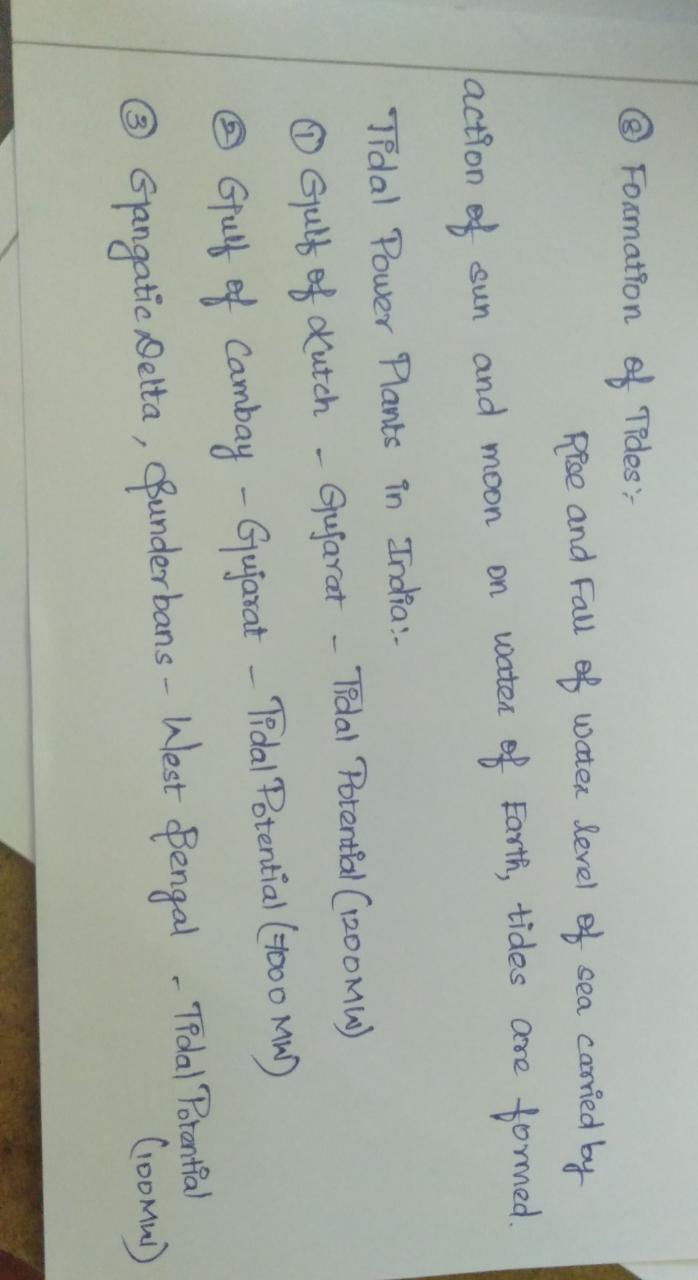 ⑧ Formation of Tides:-
Rise and Fall of water level of sea carried by
action of sun and moon on water of Earth, tides are formed.
Tidal Power Plants in India:-
① Gulf of Kutch - Gujarat - Tidal Potential (1200MW)
② Gulf of Cambay - Gujarat - Tidal Potential (7000 MW)
③ Gangatic Delta, Sunderbans - West Bengal - Tidal Potential
(100MW)